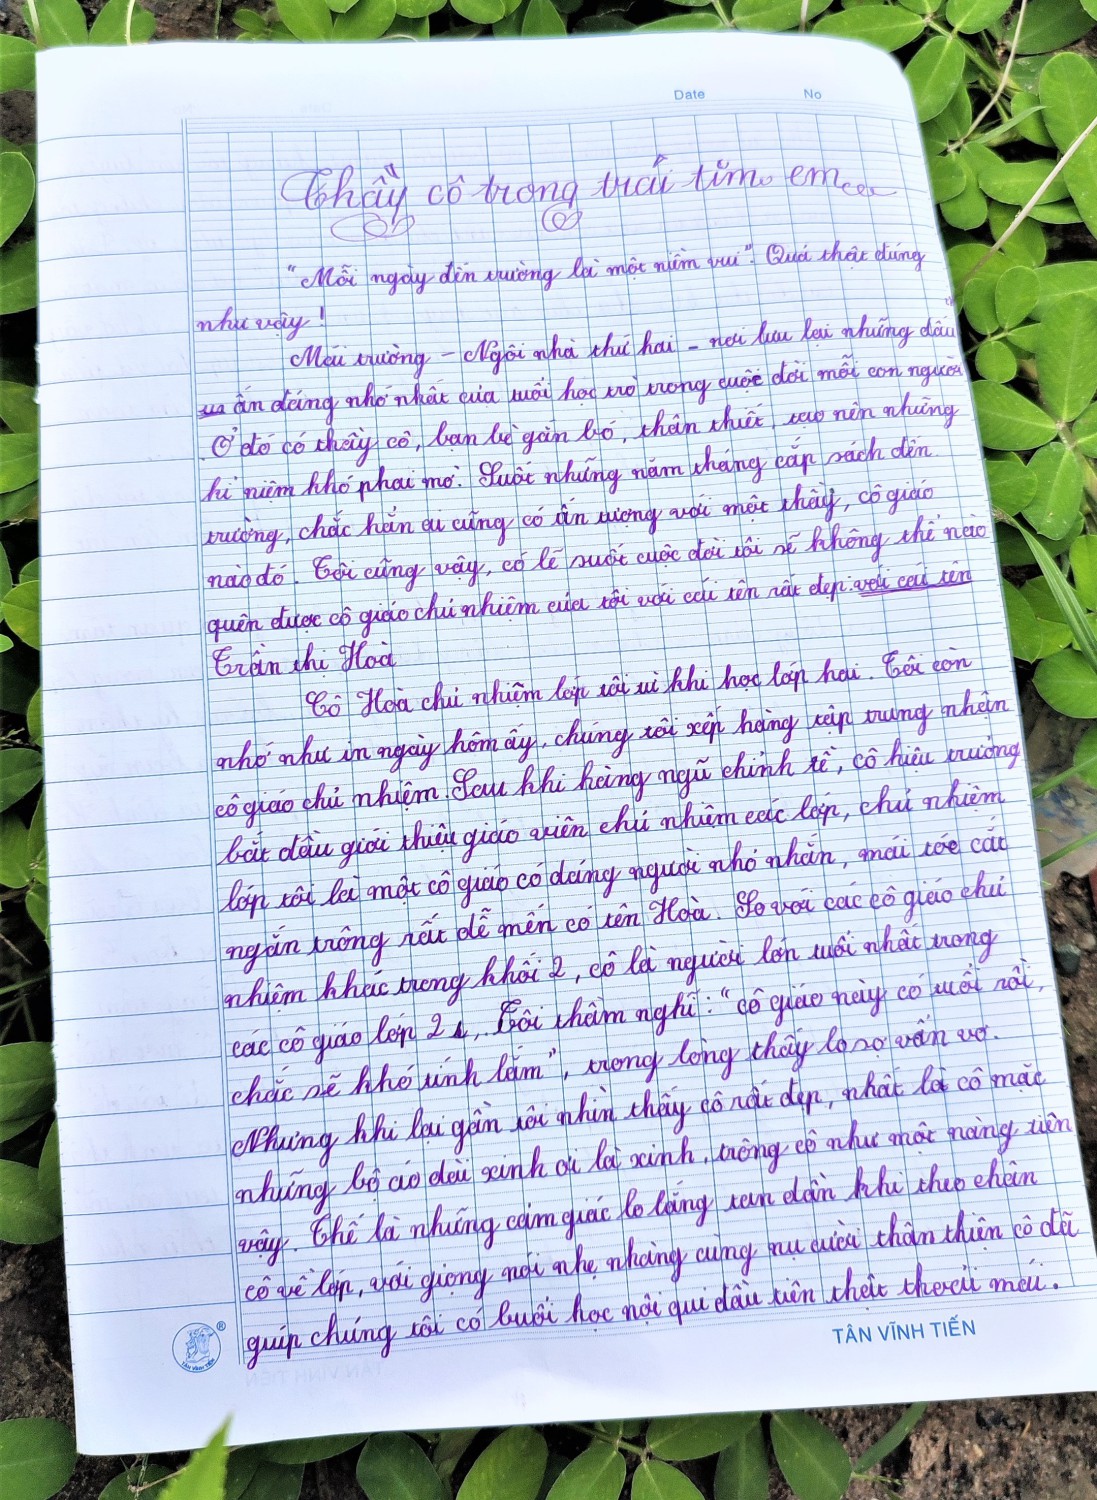 Date No
Thầy cô trong trái tim em
"Mỗi ngày đến trường là một niềm vui". Quả thật đúng
như vậy!
Mái trường - Ngôi nhà thứ hai - nơi lưu lại những dấu
ấn đáng nhớ nhất của tuổi học trò trong cuộc đời mỗi con người
Ở đó có thầy cô, bạn bè gắn bó, thân thiết, tạo nên những
kỉ niệm khó phai mờ. Suốt những năm tháng cắp sách đến
trường, chắc hẳn ai cũng có ấn tượng với một thầy, cô giáo
nào đó. Tôi cũng vậy, có lẽ suốt cuộc đời tôi sẽ không thể nào
quên được cô giáo chủ nhiệm của tôi với cái tên rất đẹp: với cái tên
Trần thị Hoà
Cô Hoà chủ nhiệm lớp tôi từ khi học lớp hai. Tôi còn
nhớ như in ngày hôm ấy, chúng tôi xếp hàng tập trung nhận
cô giáo chủ nhiệm. Sau khi hàng ngũ chỉnh tề, cô hiệu trưởng
bắt đầu giới thiệu giáo viên chủ nhiệm các lớp, chủ nhiệm
lớp tôi là một cô giáo có dáng người nhỏ nhắn, mái tóc cắt
ngắn trông rất dễ mến có tên Hoà. So với các cô giáo chủ
nhiệm khác trong khối 2, cô là người lớn tuổi nhất trong
các cô giáo lớp 2. Tôi thầm nghĩ: "cô giáo này có tuổi rồi,
chắc sẽ khó tính lắm", trong lòng thấy lo sợ vẩn vơ.
Nhưng khi lại gần tôi nhìn thấy cô rất đẹp, nhất là cô mặc
những bộ áo dài xinh ơi là xinh, trông cô như một nàng tiên
vậy. Thế là những cảm giác lo lắng tan dần khi theo chân
cô về lớp, với giọng nói nhẹ nhàng cùng nụ cười thân thiện cô đã
giúp chúng tôi có buổi học nội qui đầu tiên thật thoải mái.
TÂN VĨNH TIẾN
TÂN VĨNH TIẾN